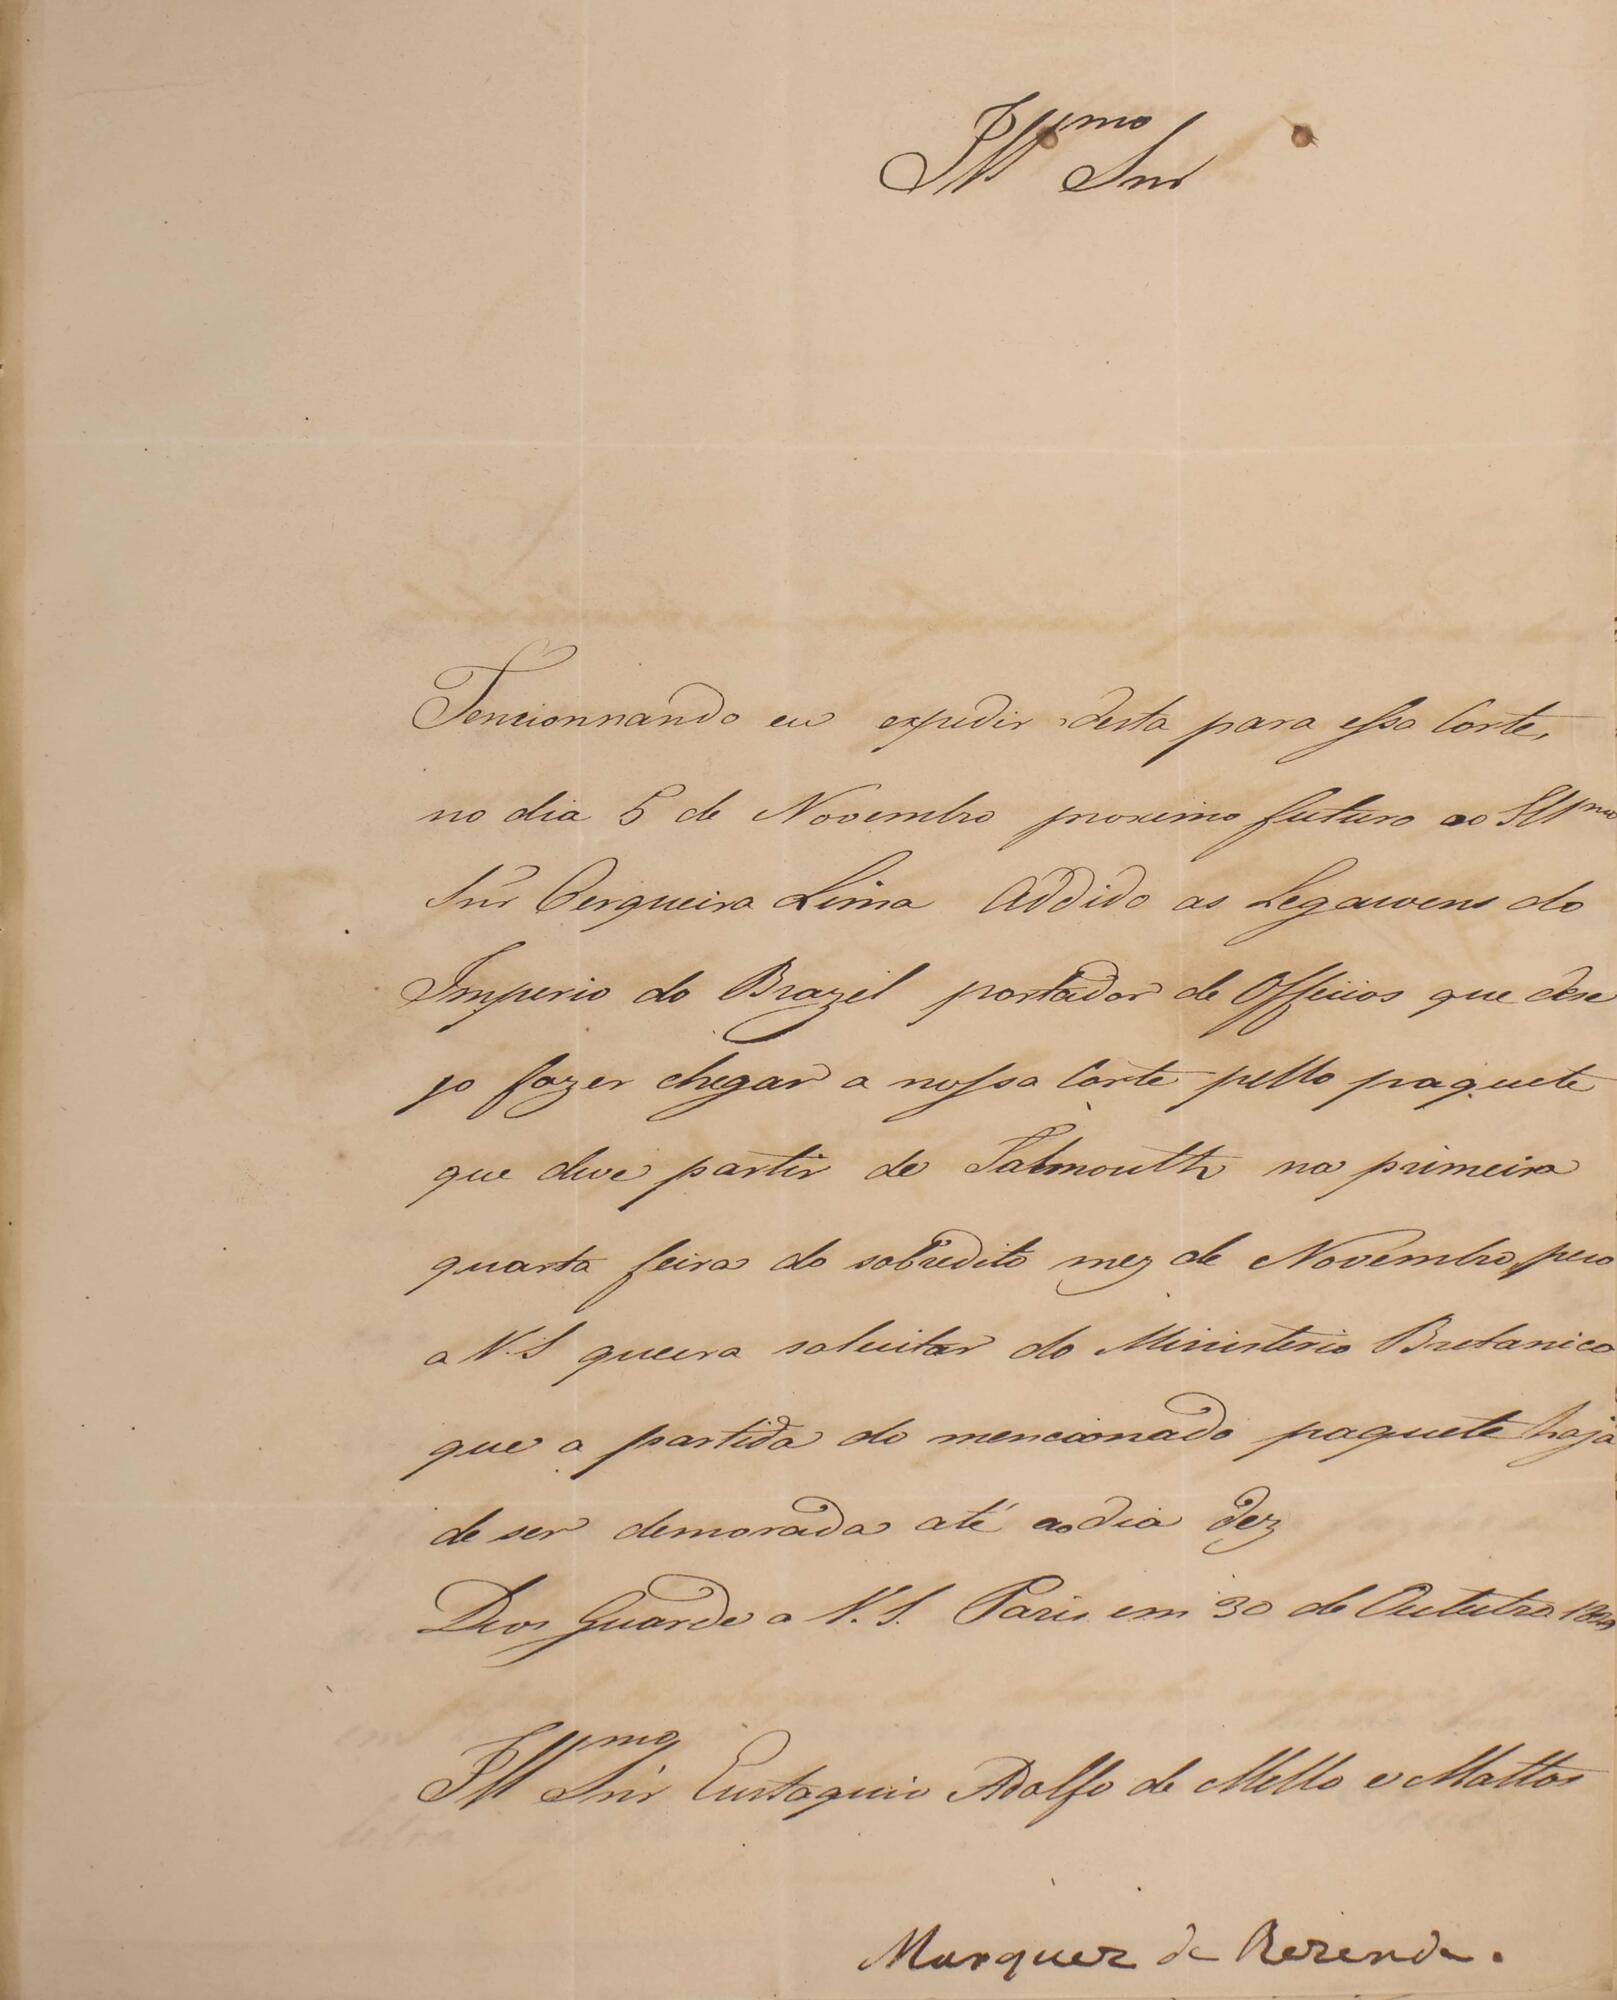 Illmo Snr
Tencionnando eu expedir desta para essa Corte,
no dia 5 de Novembro proximo futuro ao Illmo
Snr Cerqueira Lima Addido as Legacoens do
Imperio do Brazil portador de Officios que dese
jo fazer chegar a nossa Corte pello paquete
que deve partir de Falmouth na primeira
quarta feira do sobredito mez de Novembro, peco
a V. S queira solicitar do Ministerio Bretanico
que a partida do mencionado paquete haja
de ser demorada até ao dia dez
Deos Guarde a V. S. Paris em 30 de Outubro
Illmo Snr Eustaquio Adolfo de Mello e Mattos
Marquez de Rezende.